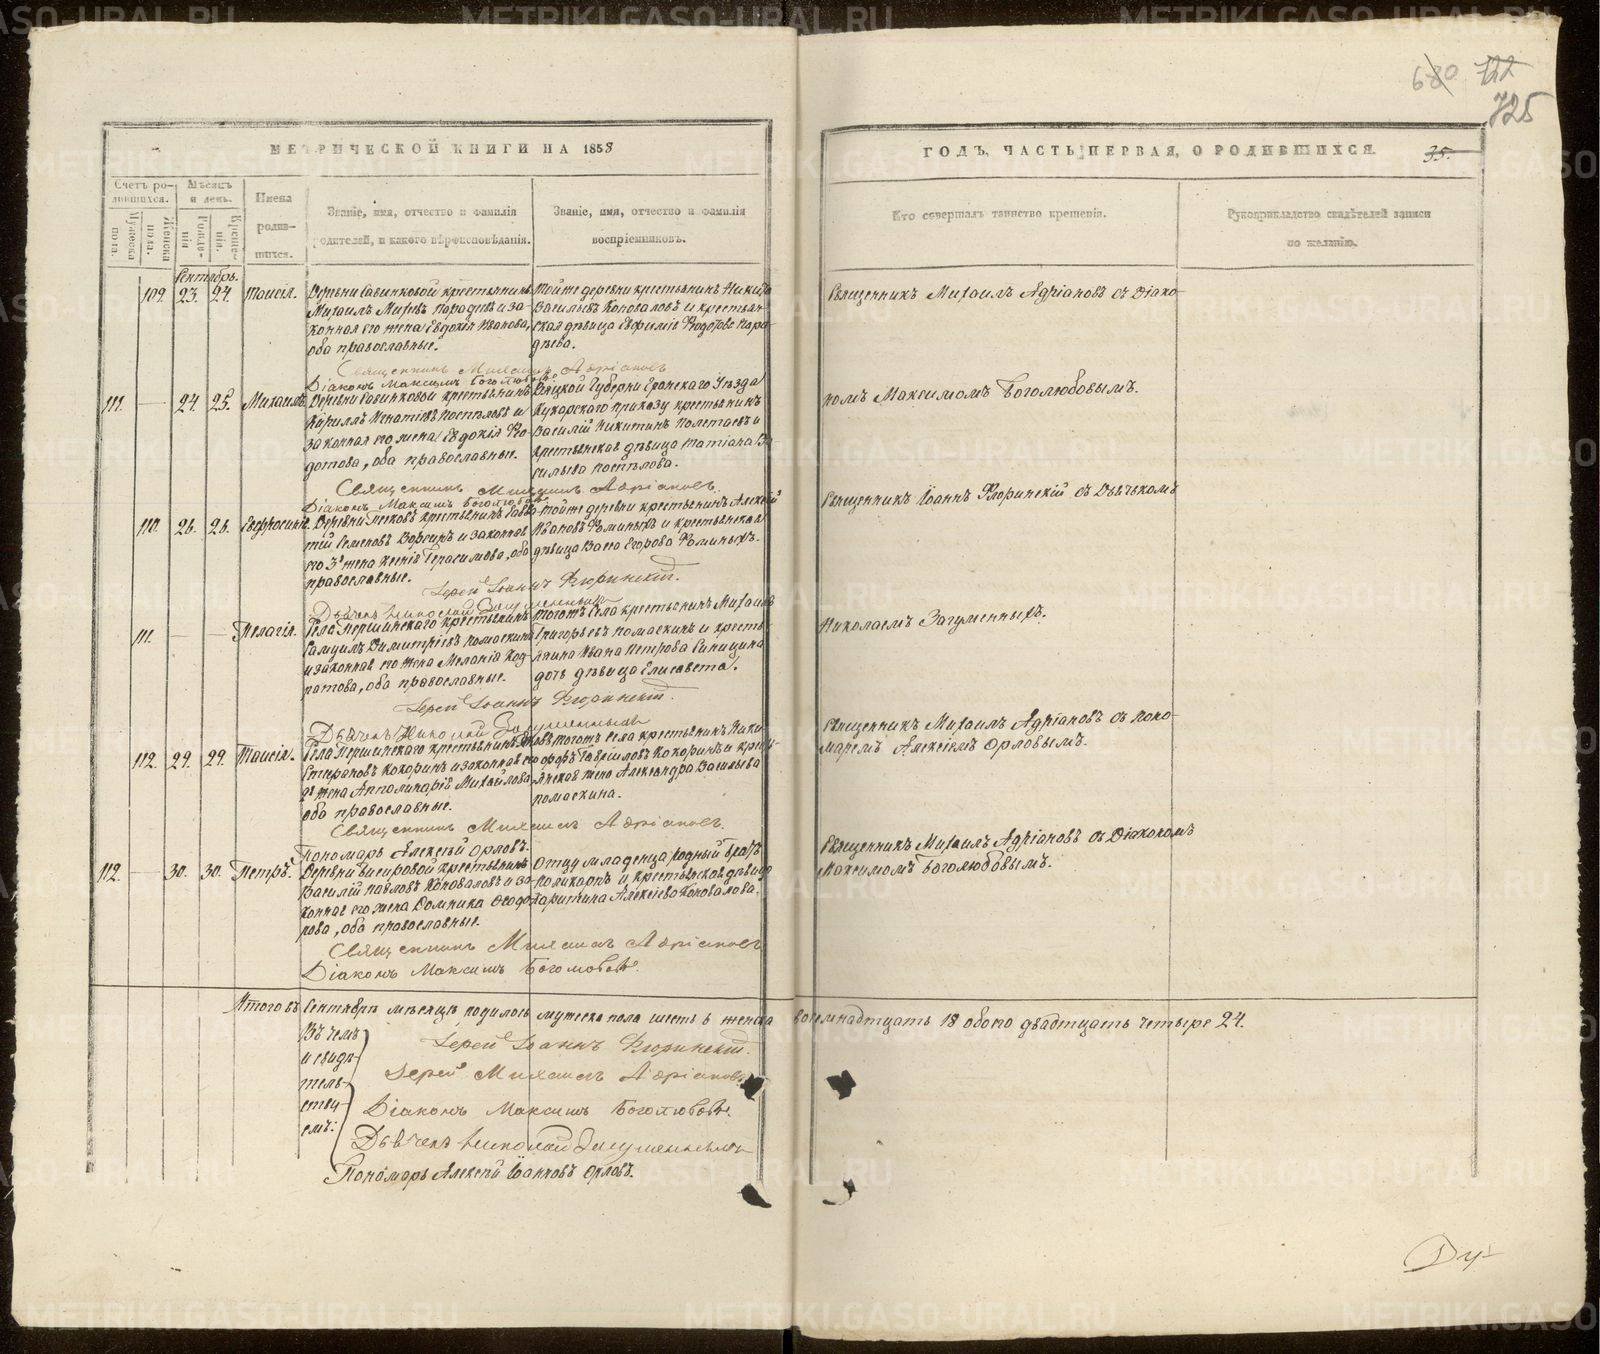 680 722
725
МЕТРИЧЕСКОЙ КНИГИ НА 1858
ГОДЪ, ЧАСТЬ ПЕРВАЯ, О РОДИВШИХСЯ.
35.
Счетъ родившихся.
Мужеска пола.
Женска пола.
Мѣсяцъ и день.
Рожденія.
Крещенія.
Имена родившихся.
Званіе, имя, отчество и фамилія
родителей, и какого вѣроисповѣданія.
Званіе, имя, отчество и фамилія
воспріемниковъ.
Кто совершалъ таинство крещенія.
Рукоприкладство свидѣтелей записи
по желанію.
Сентябрь.
109. 23. 24. Таисія.
Деревни Савинковой крестьянинъ
Михаилъ
законная его жена Евдокія Иванова,
оба православные.
Тойже деревни крестьянинъ Никита
Васильевъ Коноваловъ и крестьянская дѣвица Евфимія Ѳедотова
Священникъ Михаилъ Адріановъ съ Діако-
Священникъ Михаилъ Адріановъ
Діаконъ Максимъ Боголюбовъ.
111. — 24. 25. Михаилъ.
Деревни Савинковой крестьянинъ
Кириллъ Игнатіевъ Поспѣловъ и
законная его жена Евдокія Ѳе-
дотова, оба православные.
Вятской Губерни Уезда
Кукарскаго приказу крестьянинъ
Василій Никитинъ Полетаевъ и
крестьянская дѣвица Татіана Ва-
сильева Поспѣлова.
номъ Максимомъ Боголюбовымъ.
Священникъ Михаилъ Адріановъ.
Діаконъ Максимъ Боголюбовъ
110. 26. 26. Евфросинія.
Деревни крестьянинъ
Семеновъ и законная
его 3я жена Ксенія Герасимова, оба
православные.
Тойже деревни крестьянинъ Алексѣй
Ивановъ Ѳоминыхъ и крестьянская
дѣвица Васса Егорова Ѳоминыхъ.
Священникъ Іоаннъ Флоринскій съ Дьячькомъ
Іерей Іоаннъ Флоринскій.
Дьячекъ Николай Загуменныхъ
111. — — Пелагія.
Села Першинскаго крестьянинъ
Самуилъ Димитріевъ Помаскинъ
и законная его жена Меланія Код-
ратова, оба православные.
Тогожъ села крестьянинъ Михаилъ
Григорьевъ Помаскинъ и кресть-
янина Ивана Петрова Синицина
дочь дѣвица Елисавета.
Николаемъ Загуменныхъ.
Іерей Іоаннъ Флоринскій.
Дьячекъ Николай Загуменныхъ
112. 29. 29. Таисія.
Села Першинскаго крестьянинъ
Стефановъ Кокоринъ и законная его
2я жена Апполинарія Михайлова
оба православные.
Тогожъ села крестьянинъ Ники-
форъ Гавріиловъ Кокоринъ и кресть-
янская жена Александра Васильева
Помаскина.
Священникъ Михаилъ Адріановъ съ Поно-
маремъ Алексіемъ Орловымъ.
Священникъ Михаилъ Адріановъ.
Пономарь Алексѣй Орловъ.
112. — 30. 30. Петръ.
Деревни крестьянинъ
Василій Павловъ Коноваловъ и за-
конная его жена Домника Ѳеодо-
рова, оба православные.
Отцу младенца родный братъ
Поликарпъ и крестьянская дѣвица
Харитина Алексіева Коновалова.
Священникъ Михаилъ Адріановъ съ Діакономъ
Максимомъ Боголюбовымъ.
Священникъ Михаилъ Адріановъ
Діаконъ Максимъ Боголюбовъ.
Итого въ Сентябрѣ мѣсяцѣ родилось мужеска пола шесть 6 женска восемнадтцать 18 обоего двадтцать четыре 24.
Въ чемъ
и свидѣ-
тель-
ству-
емъ:
Іерей Іоаннъ Флоринскій.
Іерей Михаилъ Адріановъ
Діаконъ Максимъ Боголюбовъ.
Дьячекъ Николай Загуменныхъ
Пономарь Алексѣй Іоанновъ Орловъ.
METRIKI.GASO-URAL.RU